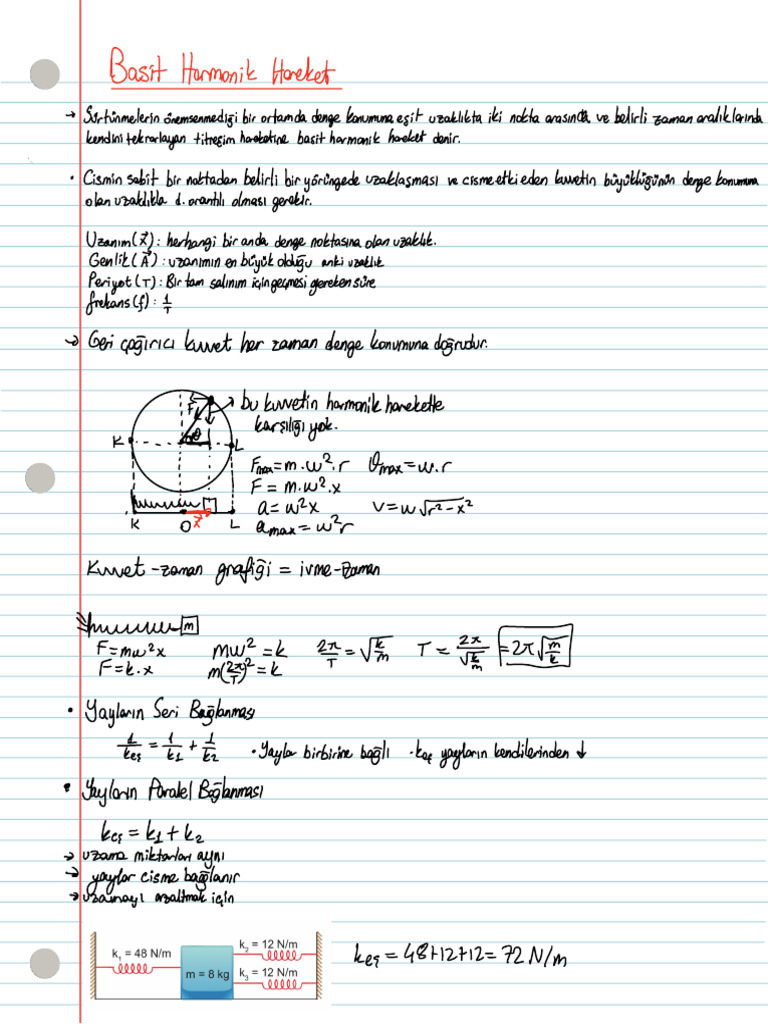 Basit Harmonik Hareket
→ Sürtünmelerin önemsenmediği bir ortamda denge konumuna eşit uzaklıkta iki nokta arasında ve belirli zaman aralıklarında
kendini tekrarlayan titreşim hareketine basit harmonik hareket denir.
• Cismin sabit bir noktadan belirli bir yörüngede uzaklaşması ve cisme etki eden kuvvetin büyüklüğünün denge konumuna
olan uzaklıkla d. orantılı olması gerekir.
Uzanım (x⃗): herhangi bir anda denge noktasına olan uzaklık.
Genlik (A⃗): uzanımın en büyük olduğu anki uzaklık
Periyot (T): Bir tam salınım için geçmesi gereken süre
frekans (f): 1/T
→ Geri çağırıcı kuvvet her zaman denge konumuna doğrudur.
F
→ bu kuvvetin harmonik harekette
karşılığı yok.
K θ L
Fmax = m.w².r ϑmax = w.r
F = m.w².x
a = w²x v = w√(r²-x²)
amax = w²r
K O x⃗ L
Kuvvet-zaman grafiği = ivme-zaman
m
F = mw²x mw² = k 2π/T = √(k/m) T = 2π/√(k/m) = 2π√(m/k)
F = k.x m(2π/T)² = k
• Yayların Seri Bağlanması
1/keş = 1/k1 + 1/k2 • Yaylar birbirine bağlı • keş yayların kendilerinden ↓
• Yayların Paralel Bağlanması
keş = k1 + k2
→ uzama miktarları aynı
→ yaylar cisme bağlanır
→ uzamayı azaltmak için
k1 = 48 N/m k2 = 12 N/m
m = 8 kg k3 = 12 N/m
keş = 48+12+12 = 72 N/m